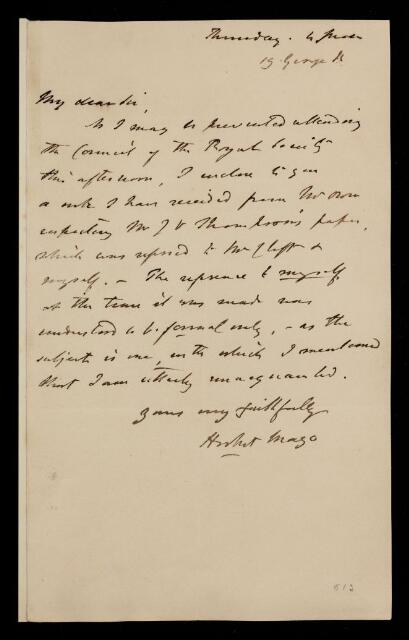 Thursday. 4 June
19. George St
My dear Sir,
As I may be prevented attending
the Council of the Royal Society
this afternoon, I enclose to you
a note I have received from Mr Owen
respecting Mr J V Thompson's paper,
which was refered to Mr Clift &
myself. – The reference to myself
at the time it was made was
understood to be formal only, – as the
subject is one, with which I mentioned
that I am utterly unacquainted.
Yours very faithfully
Herbert Mayo